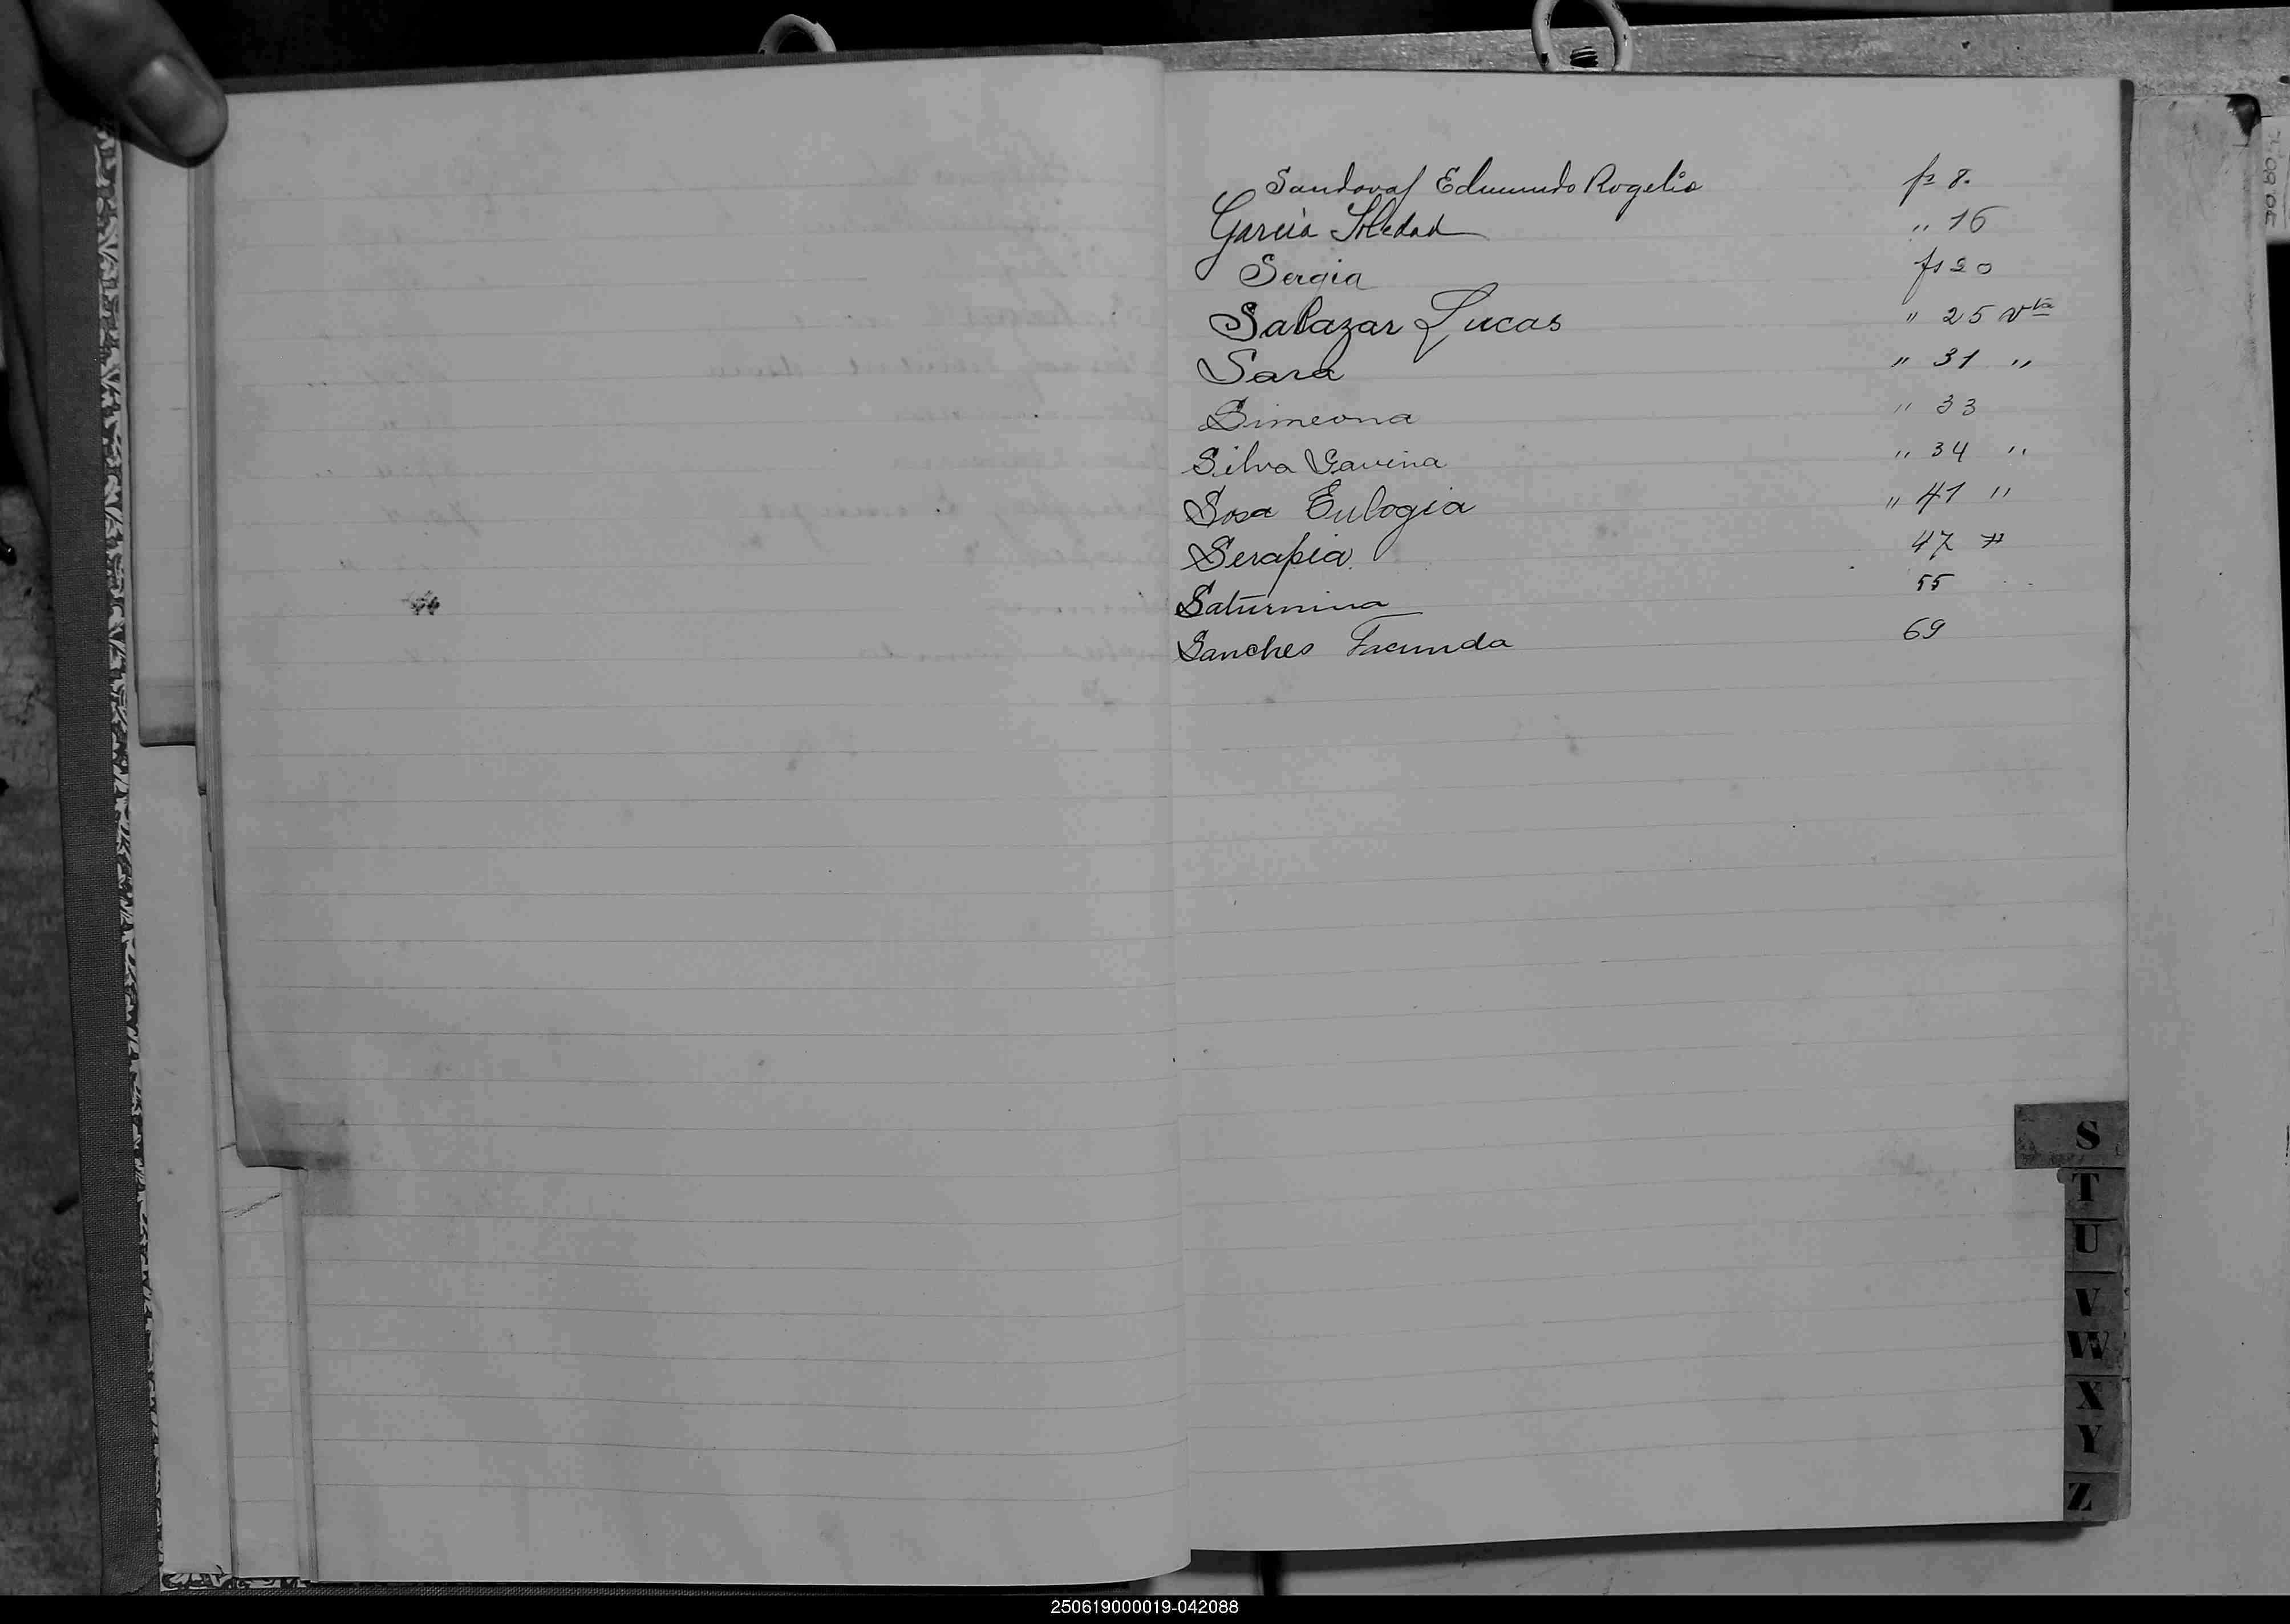 Sandoval Edmundo Rogelio fs 8.
García Soledad " 16
Sergia fs 20
Salazar Lucas " 25 vta
Sara " 31 "
Simeona " 33
Silva Gavina " 34 "
Sosa Eulogia " 41 "
Serapia 47 "
Saturnina 55
Sanches Facunda 69
S
T
U
V
W
X
Y
Z
250619000019-042088